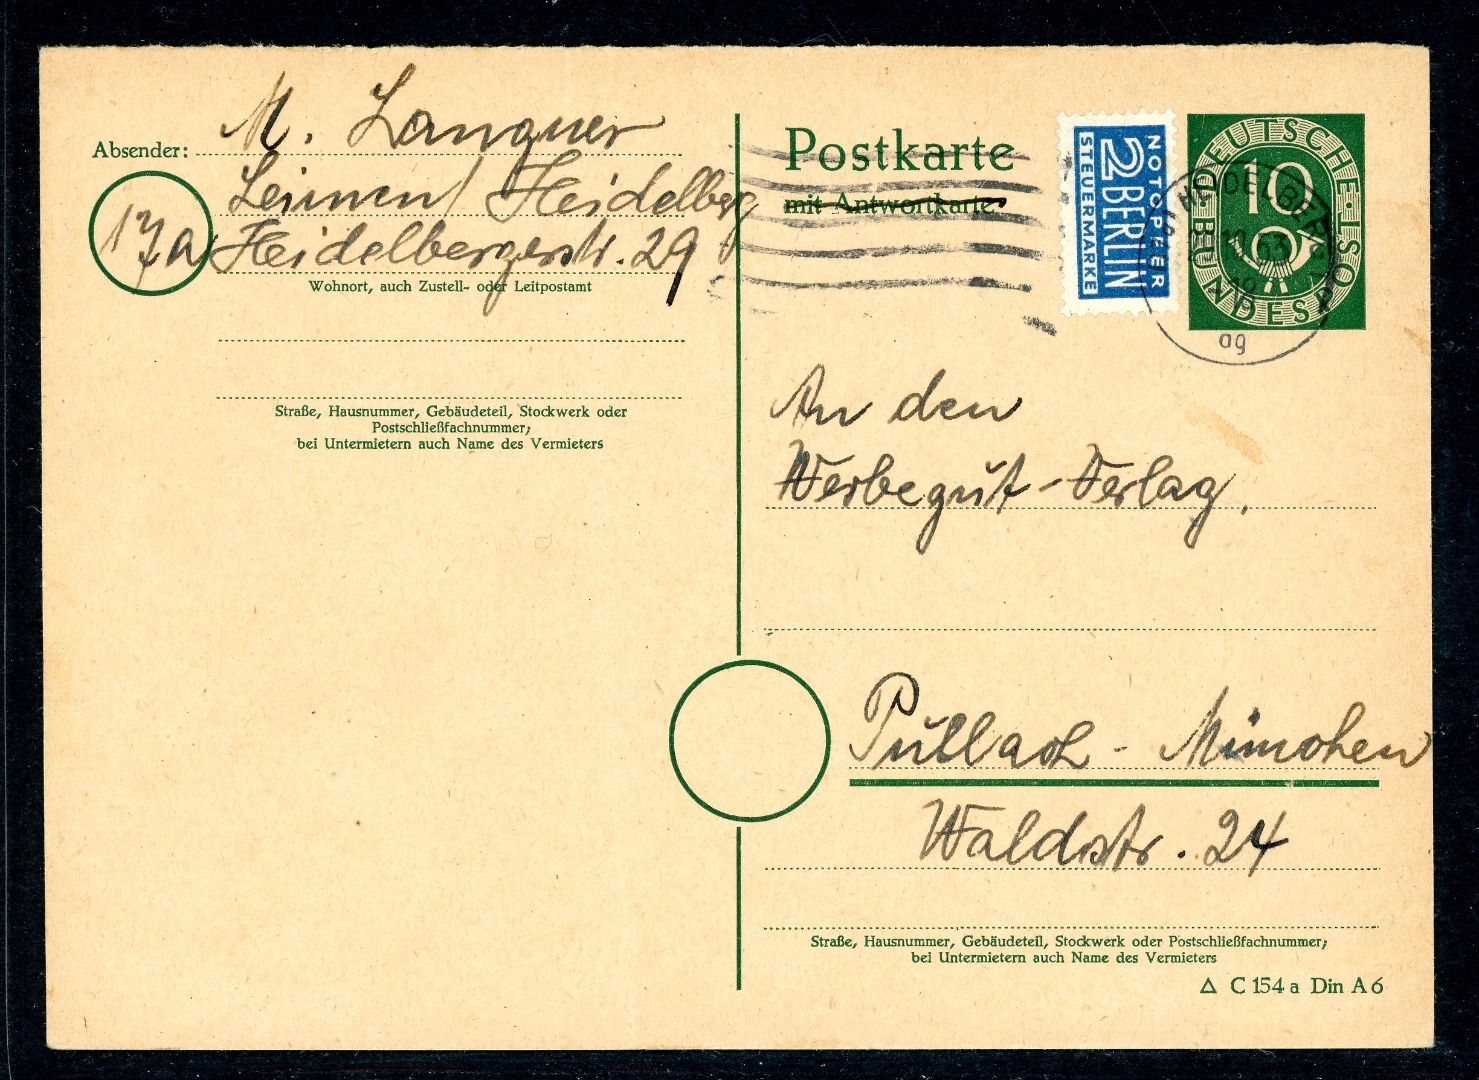 Absender: M. Langner
Leimen/Heidelberg
17a Heidelbergerstr. 29
Wohnort, auch Zustell- oder Leitpostamt
Straße, Hausnummer, Gebäudeteil, Stockwerk oder
Postschließfachnummer;
bei Untermietern auch Name des Vermieters
Postkarte
mit Antwortkarte
NOTOPFER
2 BERLIN
STEUERMARKE
DEUTSCHE BUNDESPOST
10
HEIDELBERG
ag
An den
Werbegut-Verlag,
Pullach - München
Waldstr. 24
Straße, Hausnummer, Gebäudeteil, Stockwerk oder Postschließfachnummer;
bei Untermietern auch Name des Vermieters
△ C 154 a Din A 6